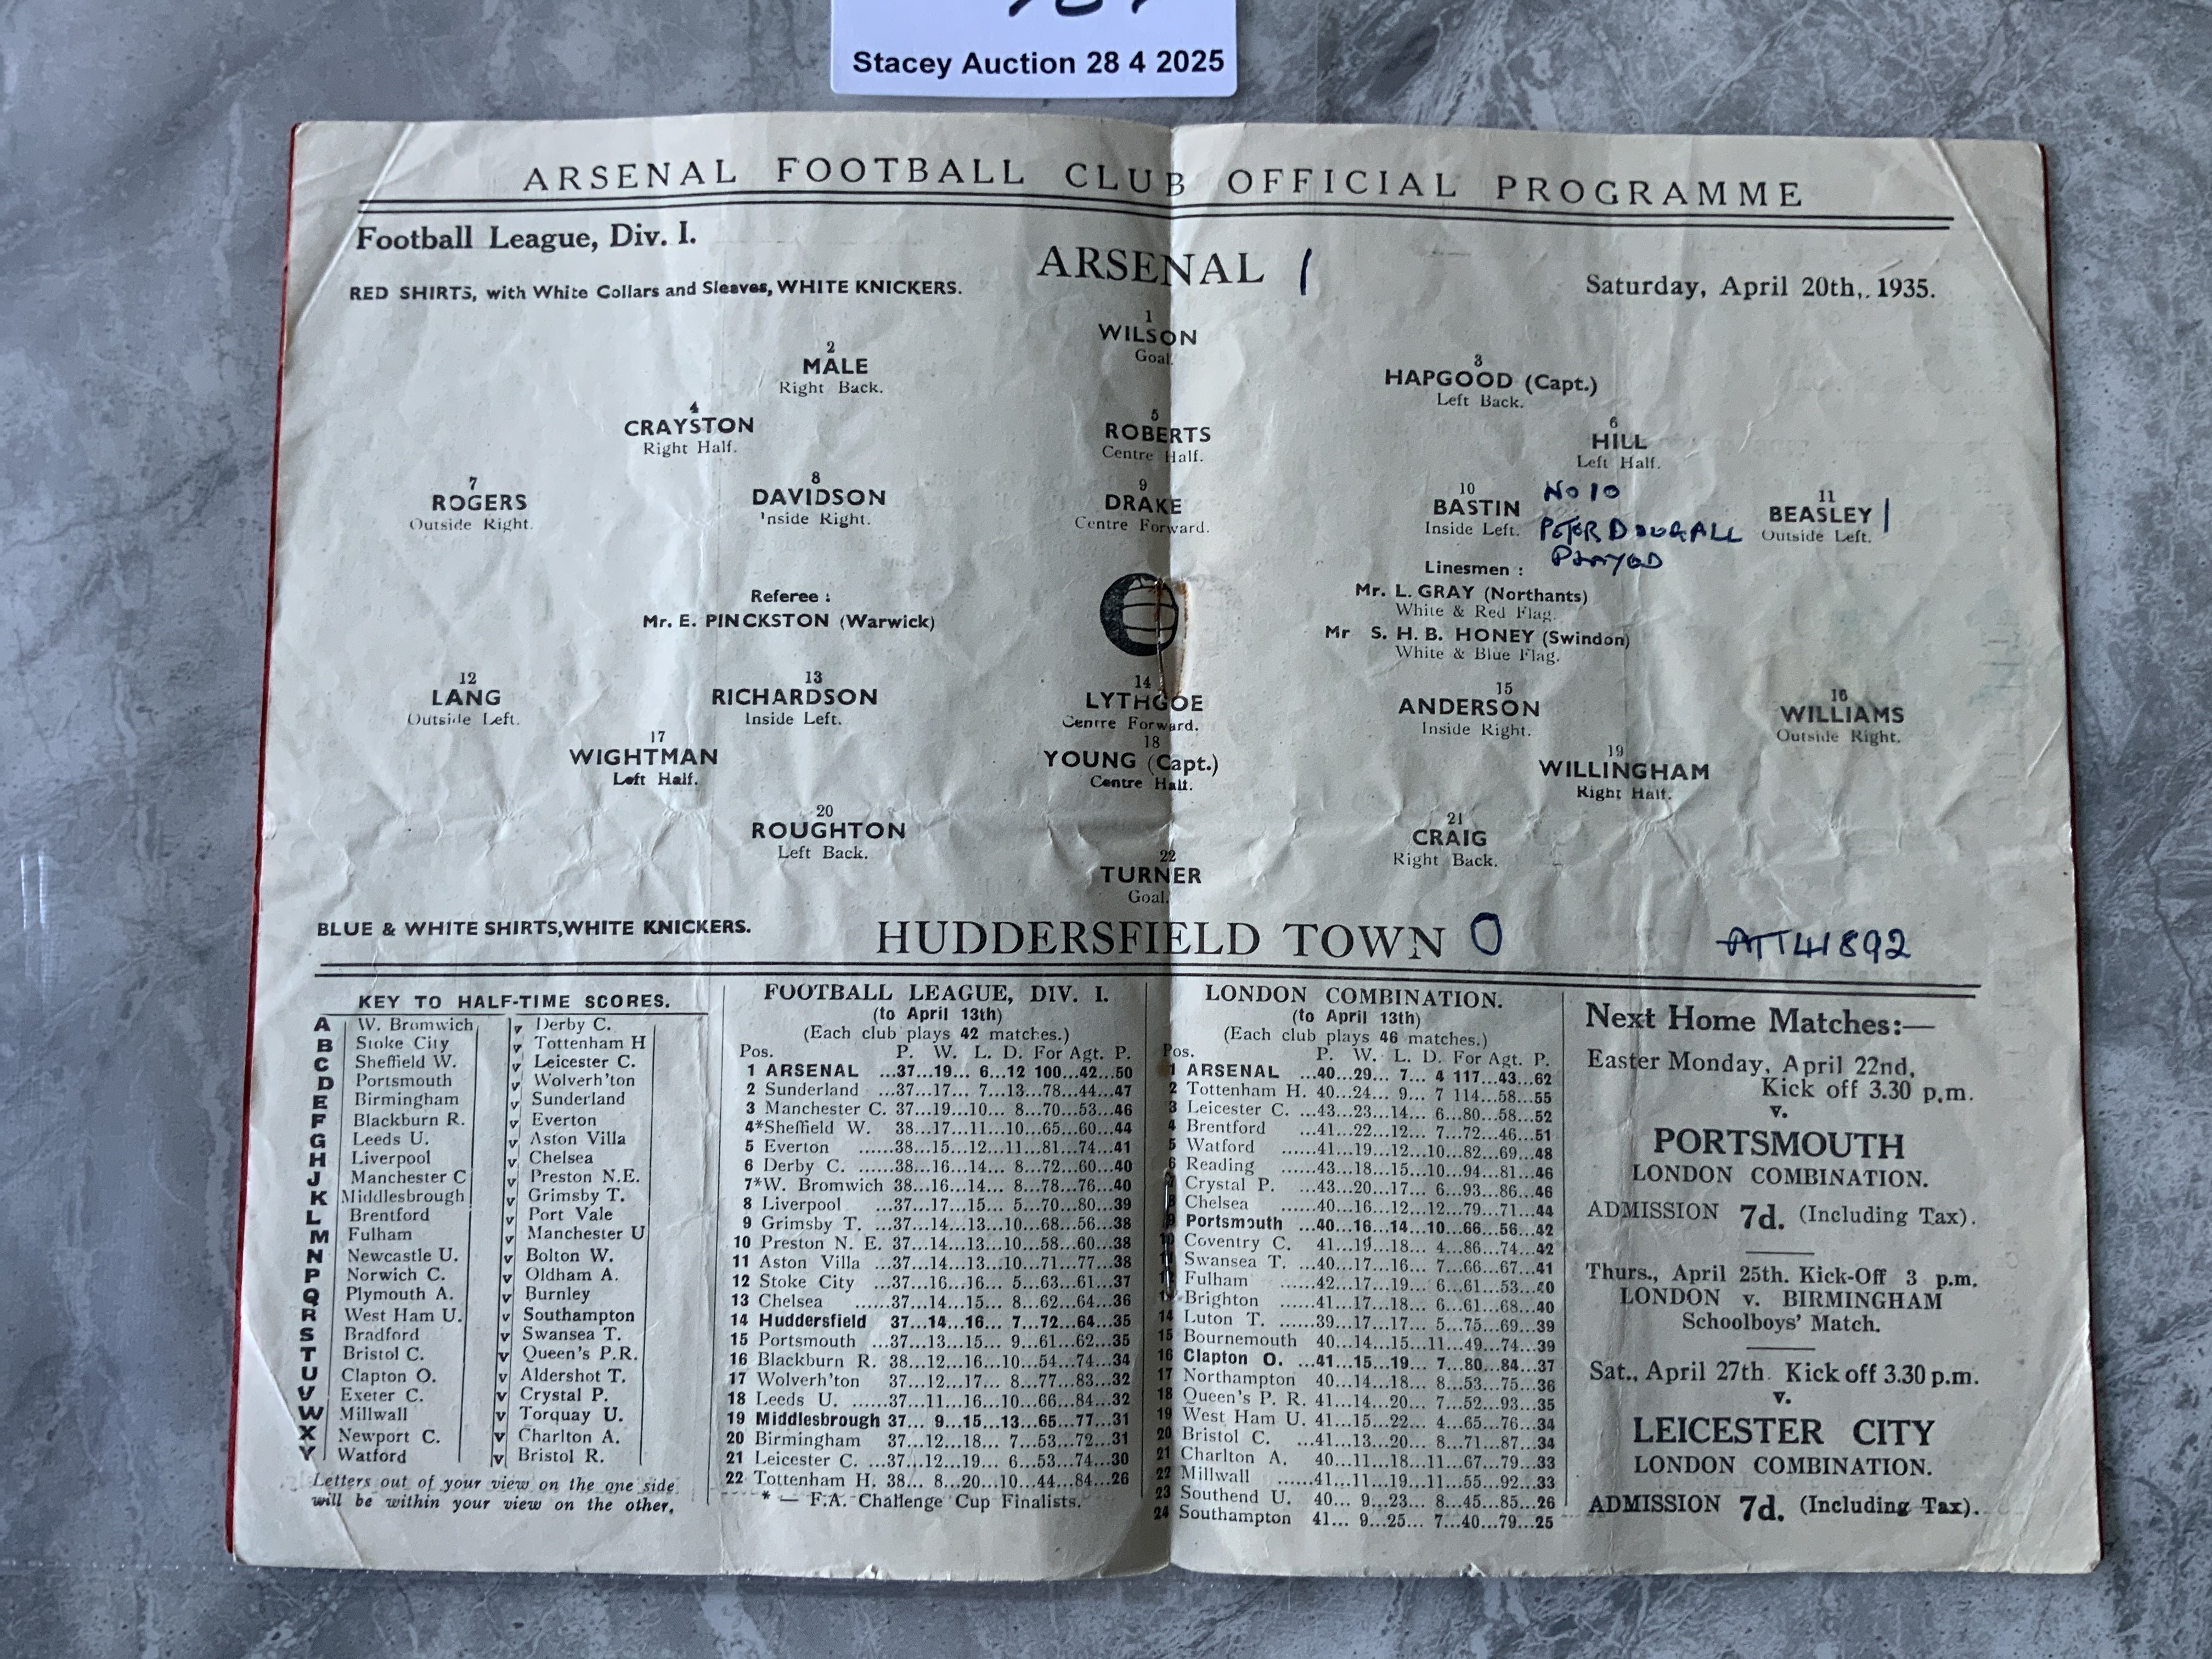 Stacey Auction 28 4 2025
ARSENAL FOOTBALL CLUB OFFICIAL PROGRAMME
Football League, Div. I.
ARSENAL 1
RED SHIRTS, with White Collars and Sleaves, WHITE KNICKERS.
Saturday, April 20th,. 1935.
1
WILSON
Goal.
2
MALE
Right Back.
3
HAPGOOD (Capt.)
Left Back.
4
CRAYSTON
Right Half.
5
ROBERTS
Centre Half.
6
HILL
Left Half.
7
ROGERS
Outside Right.
8
DAVIDSON
Inside Right.
9
DRAKE
Centre Forward.
10
BASTIN
Inside Left.
No 10
PETER DOUGALL
PLAYED
11
BEASLEY 1
Outside Left.
Referee :
Mr. E. PINCKSTON (Warwick)
Linesmen :
Mr. L. GRAY (Northants)
White & Red Flag.
Mr S. H. B. HONEY (Swindon)
White & Blue Flag.
12
LANG
Outside Left.
13
RICHARDSON
Inside Left.
14
LYTHGOE
Centre Forward.
15
ANDERSON
Inside Right.
16
WILLIAMS
Outside Right.
17
WIGHTMAN
Left Half.
18
YOUNG (Capt.)
Centre Half.
19
WILLINGHAM
Right Half.
20
ROUGHTON
Left Back.
21
CRAIG
Right Back.
22
TURNER
Goal.
BLUE & WHITE SHIRTS,WHITE KNICKERS.
HUDDERSFIELD TOWN 0
ATT 41892
KEY TO HALF-TIME SCORES.
A W. Bromwich v Derby C.
B Stoke City v Tottenham H
C Sheffield W. v Leicester C.
D Portsmouth v Wolverh'ton
E Birmingham v Sunderland
F Blackburn R. v Everton
G Leeds U. v Aston Villa
H Liverpool v Chelsea
J Manchester C v Preston N.E.
K Middlesbrough v Grimsby T.
L Brentford v Port Vale
M Fulham v Manchester U
N Newcastle U. v Bolton W.
P Norwich C. v Oldham A.
Q Plymouth A. v Burnley
R West Ham U. v Southampton
S Bradford v Swansea T.
T Bristol C. v Queen's P.R.
U Clapton O. v Aldershot T.
V Exeter C. v Crystal P.
W Millwall v Torquay U.
X Newport C. v Charlton A.
Y Watford v Bristol R.
Letters out of your view on the one side
will be within your view on the other.
FOOTBALL LEAGUE, DIV. I.
(to April 13th)
(Each club plays 42 matches.)
Pos. P. W. L. D. For Agt. P.
1 ARSENAL ...37...19... 6...12 100...42...50
2 Sunderland ...37...17... 7...13...78...44...47
3 Manchester C. 37...19...10... 8...70...53...46
4*Sheffield W. 38...17...11...10...65...60...44
5 Everton ......38...15...12...11...81...74...41
6 Derby C. ......38...16...14... 8...72...60...40
7*W. Bromwich 38...16...14... 8...78...76...40
8 Liverpool ...37...17...15... 5...70...80...39
9 Grimsby T. ...37...14...13...10...68...56...38
10 Preston N. E. 37...14...13...10...58...60...38
11 Aston Villa ...37...14...13...10...71...77...38
12 Stoke City ...37...16...16... 5...63...61...37
13 Chelsea ......37...14...15... 8...62...64...36
14 Huddersfield 37...14...16... 7...72...64...35
15 Portsmouth ...37...13...15... 9...61...62...35
16 Blackburn R. 38...12...16...10...54...74...34
17 Wolverh'ton 37...12...17... 8...77...83...32
18 Leeds U. ......37...11...16...10...66...84...32
19 Middlesbrough 37... 9...15...13...65...77...31
20 Birmingham 37...12...18... 7...53...72...31
21 Leicester C. ...37...12...19... 6...53...74...30
22 Tottenham H. 38... 8...20...10...44...84...26
* — F.A. Challenge Cup Finalists.
LONDON COMBINATION.
(to April 13th)
(Each club plays 46 matches.)
Pos. P. W. L. D. For Agt. P.
1 ARSENAL ...40...29... 7... 4 117...43...62
2 Tottenham H. 40...24... 9... 7 114...58...55
3 Leicester C. ...43...23...14... 6...80...58...52
4 Brentford ...41...22...12... 7...72...46...51
5 Watford ......41...19...12...10...82...69...48
6 Reading ......43...18...15...10...94...81...46
7 Crystal P. ...43...20...17... 6...93...86...46
8 Chelsea ......40...16...12...12...79...71...44
9 Portsmouth ...40...16...14...10...66...56...42
10 Coventry C. 41...19...18... 4...86...74...42
11 Swansea T. ...40...17...16... 7...66...67...41
12 Fulham ......42...17...19... 6...61...53...40
13 Brighton ......41...17...18... 6...61...68...40
14 Luton T. ......39...17...17... 5...75...69...39
15 Bournemouth 40...14...15...11...49...74...39
16 Clapton O. ...41...15...19... 7...80...84...37
17 Northampton 40...14...18... 8...53...75...36
18 Queen's P. R. 41...14...20... 7...52...93...35
19 West Ham U. 41...15...22... 4...65...76...34
20 Bristol C. ...41...13...20... 8...71...87...34
21 Charlton A. 40...11...18...11...67...79...33
22 Millwall ......41...11...19...11...55...92...33
23 Southend U. 40... 9...23... 8...45...85...26
24 Southampton 41... 9...25... 7...40...79...25
Next Home Matches:—
Easter Monday, April 22nd,
Kick off 3.30 p.m.
v.
PORTSMOUTH
LONDON COMBINATION.
ADMISSION 7d. (Including Tax).
Thurs., April 25th. Kick-Off 3 p.m.
LONDON v. BIRMINGHAM
Schoolboys' Match.
Sat., April 27th. Kick off 3.30 p.m.
v.
LEICESTER CITY
LONDON COMBINATION.
ADMISSION 7d. (Including Tax).